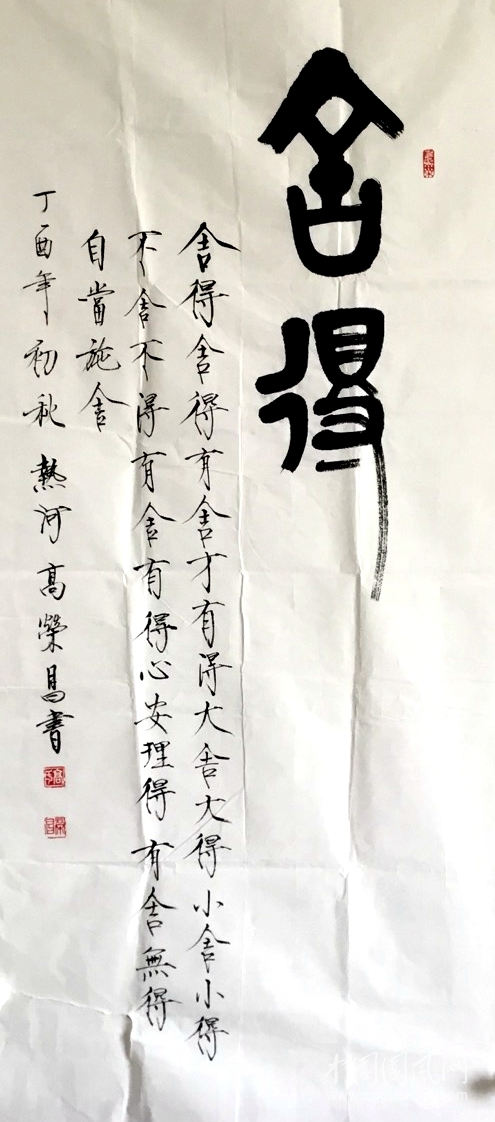 舍得
舍得舍得有舍才有得大舍大得小舍小得
不舍不得有舍有得心安理得有舍無得
自當施舍
丁酉年初秋 熱河高榮昌書